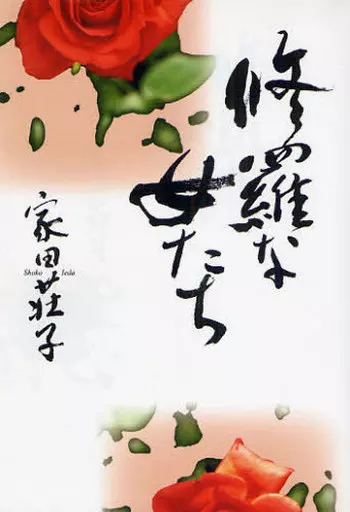 修羅な
女たち
家田荘子
Shoko Ieda